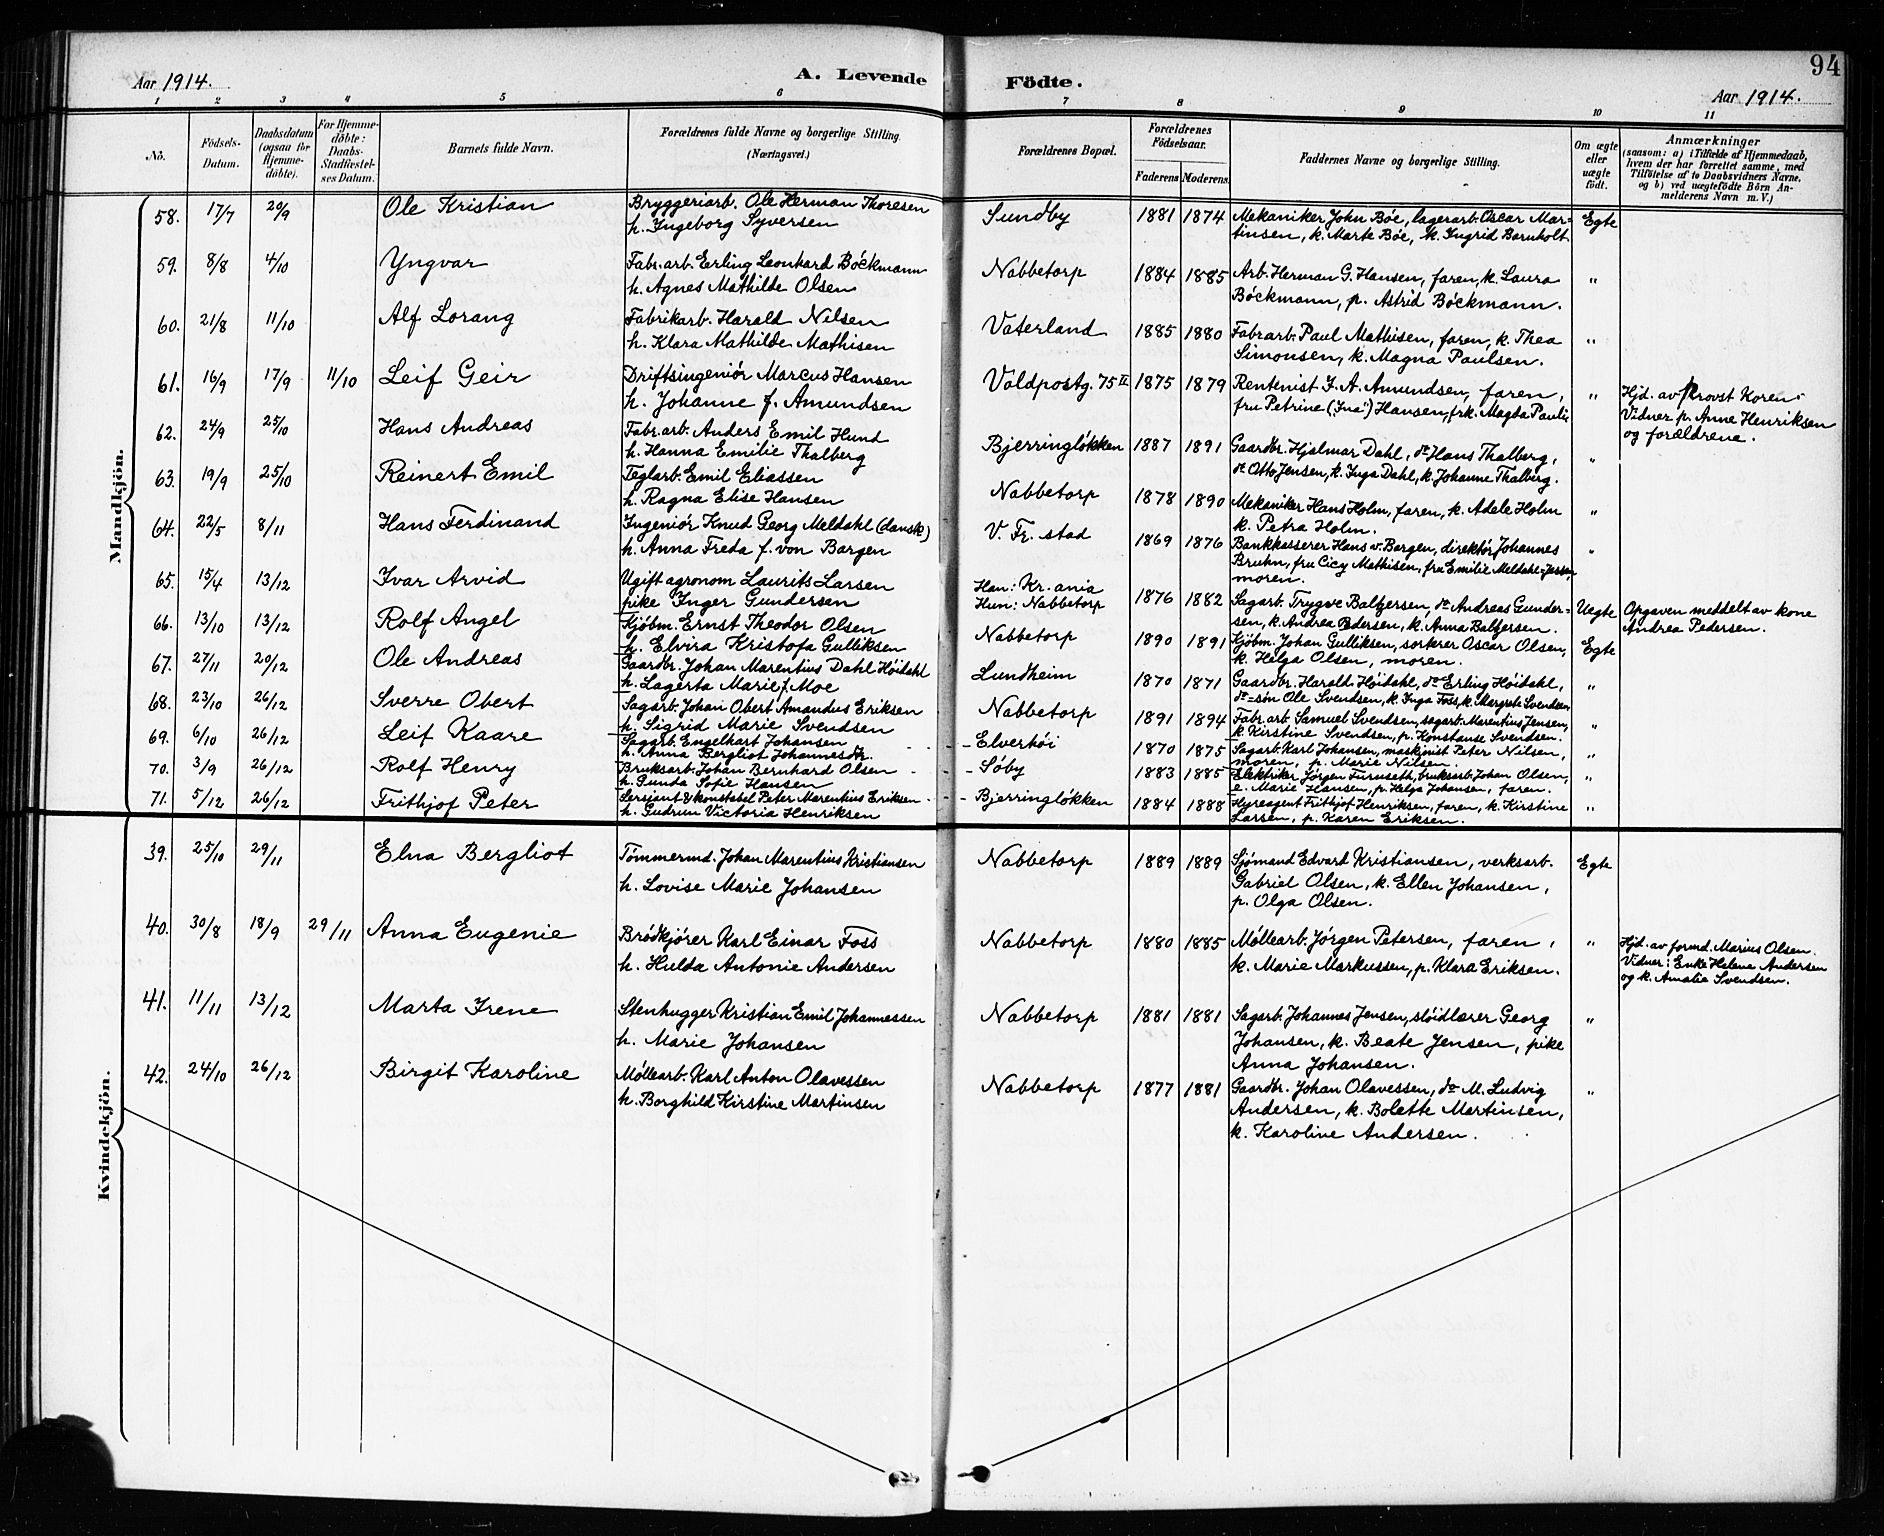 94
Aar 1914.
A. Levende Födte.
Aar 1914.
1 2 3 4 5 6 7 8 9 10 11
No.
Födsels-Datum.
Daabsdatum (ogsaa for Hjemme-döbte).
For Hjemme-döbte: Daabs-Stadfæstel-ses Datum.
Barnets fulde Navn.
Forældrenes fulde Navne og borgerlige Stilling. (Næringsvei.)
Forældrenes Bopæl.
Forældrenes Födselsaar.
Faderens. Moderens.
Faddernes Navne og borgerlige Stilling.
Om ægte eller uægte födt.
Anmærkninger
(saasom: a) i Tilfælde af Hjemmedaab, hvem der har forrettet samme, med Tilföielse af to Daabsvidners Navne, og b) ved uægtefödte Börn An-melderens Navn m. V.)
Mandkjön.
58. 17/7 20/9 Ole Kristian Bryggeriarb. Ole Herman Thoresen Sundby 1881 1874 Mekaniker John Bøe, lagerarb. Oscar Mar- Egte
h. Ingeborg Syversen tinsen, k. Marte Bøe, k. Ingrid Barnholt
59. 8/8 4/10 Yngvar Fabr.arb. Erling Leonhard Böckmann Nabbetorp 1884 1885 Arb. Herman G. Hansen, faren, k. Laura "
h. Agnes Mathilde Olsen Böckmann, p. Astrid Böckmann.
60. 21/8 11/10 Alf Lorang Fabrikarb. Harald Nilsen Vaterland 1885 1880 Fabrarb. Paul Mathisen, faren, k. Thea "
h. Klara Mathilde Mathisen Simonsen, k. Magna Paulsen.
61. 16/9 17/9 11/10 Leif Geir Driftsingeniör Marcus Hansen Voldportg. 75 II 1875 1879 Rentenist I. A. Amundsen, faren, " Hjd. av Provst Koren.
h. Johanne f. Amundsen fru Petrine (Ina) Hansen, frk. Magda Pauli Vidner p. Anne Henriksen
og forældrene.
62. 24/9 25/10 Hans Andreas Fabr. arb. Anders Emil Hund Bjerringløkken 1887 1891 Gaardbr. Hjalmar Dahl, do Hans Thalberg, "
h. Hanna Emilie Thalberg do Otto Jensen, k. Inga Dahl, k. Johanne Thalberg.
63. 19/9 25/10 Reinert Emil Teglarb. Emil Eliassen Nabbetorp 1878 1890 Mekaniker Hans Holm, faren, k. Adele Holm "
h. Ragna Elise Hansen k. Petra Holm.
64. 22/5 8/11 Hans Ferdinand Ingeniör Knud Georg Meldahl (dansk) V. Fr. stad 1869 1876 Bankkasserer Hans v. Bargen, direktör Johannes "
h. Anna Freda f. von Bargen Bruhn, fru Cicy Mathisen, fru Emilie Meldahl-Jessen,
moren.
65. 15/4 13/12 Ivar Arvid Ugift agronom Laurits Larsen Han: Kr. ania 1876 1882 Sagarb. Trygve Baltzersen, do Andreas Gunder- Uegte Opgaven meddelt av kone
pike Inger Gundersen Hun: Nabbetorp sen, k. Andrea Pedersen, k. Anna Baltzersen. Andrea Pedersen.
66. 13/10 13/12 Rolf Angel Kjøbm. Ernst Theodor Olsen Nabbetorp 1890 1891 Kjøbm. Johan Gulliksen, sorkrer Oscar Olsen, Egte
h. Elvira Kristofa Gulliksen k. Helga Olsen, moren.
67. 27/11 20/12 Ole Andreas Gaardbr. Johan Marentius Dahl Höidahl Lundheim 1870 1871 Gaardbr. Harald Höidahl, do Erling Höidahl, "
h. Lagerta Marie f. Moe do =søn Ole Svendsen, k. Inga Foss, k. Margrete Svendsen
68. 23/10 26/12 Sverre Obert Sagarb. Johan Obert Amandus Eriksen Nabbetorp 1891 1894 Fabr. arb. Samuel Svendsen, sagarb. Marentius Jensen, "
h. Sigrid Marie Svendsen k. Kirstine Svendsen, p. Konstanse Svendsen.
69. 6/10 26/12 Leif Kaare Sagarb. Engelhart Johansen Elverhöi 1870 1875 Sagarb. Karl Johansen, maskinist Peter Nilsen, "
h. Anna Bergliot Johannesdtr. moren, p. Marie Nilsen.
70. 3/9 26/12 Rolf Henry Bruksarb. Johan Bernhard Olsen Søby 1883 1885 Elektriker Jørgen Furuseth, bruksarb. Johan Olsen, "
h. Gunda Sofie Hansen e. Marie Hansen, p. Helga Johansen, faren.
71. 5/12 26/12 Frithjof Peter Sersjant & konstabel Peter Marentius Eriksen Bjerringløkken 1884 1888 Hyreagent Frithjof Henriksen, faren, k. Kirstine "
h. Gudrun Victoria Henriksen Larsen, p. Karen Eriksen.
Kvindekjön.
39. 25/10 29/11 Elna Bergliot Tømmermd. Johan Marentius Kristiansen Nabbetorp 1889 1889 Sjømand Edvard Kristiansen, verksarb. Egte
h. Lovise Marie Johansen Gabriel Olsen, k. Ellen Johansen,
p. Olga Olsen.
40. 30/8 18/9 29/11 Anna Eugenie Brødkjører Karl Einar Foss Nabbetorp 1880 1885 Møllearb. Jørgen Petersen, faren, " Hjd. av formd. Marius Olsen.
h. Hulda Antonie Andersen k. Marie Markussen, p. Klara Eriksen. Vidner: Enke Helene Andersen
og k. Amalie Svendsen.
41. 11/11 13/12 Marta Irene Stenhugger Kristian Emil Johannessen Nabbetorp 1881 1881 Sagarb. Johannes Jensen, sløidlærer Georg "
h. Marie Johansen Johansen, k. Beate Jensen, pike
Anna Johansen.
42. 24/10 26/12 Birgit Karoline Møllearb. Karl Anton Olavessen Nabbetorp 1877 1881 Gaardbr. Johan Olavessen, do M. Ludvig "
h. Borghild Kirstine Martinsen Andersen, k. Bolette Martinsen,
k. Karoline Andersen.